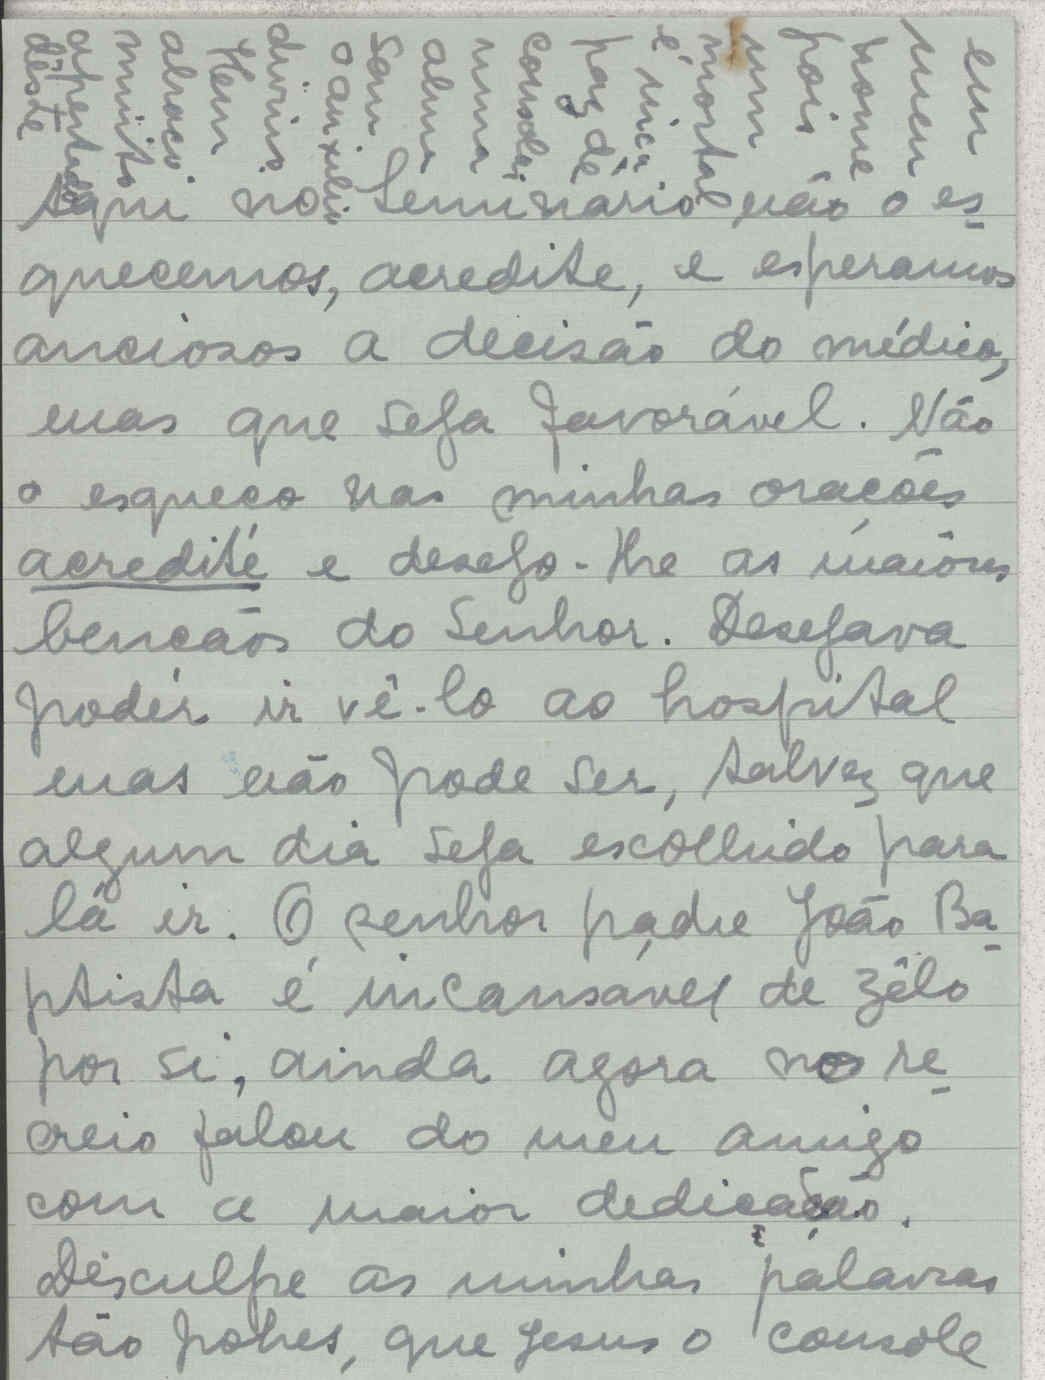 Aqui no Seminário não o es-
quecemos, acredite, e esperamos
anciosos a decisão do médico,
mas que seja favorável. Não
o esqueço nas minhas orações
acredité e desejo-lhe as maióres
bençãos do Senhor. Desejava
podér ir vê-lo ao hospital
mas não pode ser, talvez que
algum dia seja escolhido para
lá ir. O senhor padre João Ba-
ptista é incansável de zêlo
por si, ainda agora no re-
creio falou do meu amigo
com a maior dedicação.
Desculpe as minhas pálavras
tão pobres, que Jesus o console
em
meu
nome
pois
um
mortal
é inca
paz de
consolar
uma
alma
sem
o auxílio
divino
Hum
abraço
muito
apertado
dêste